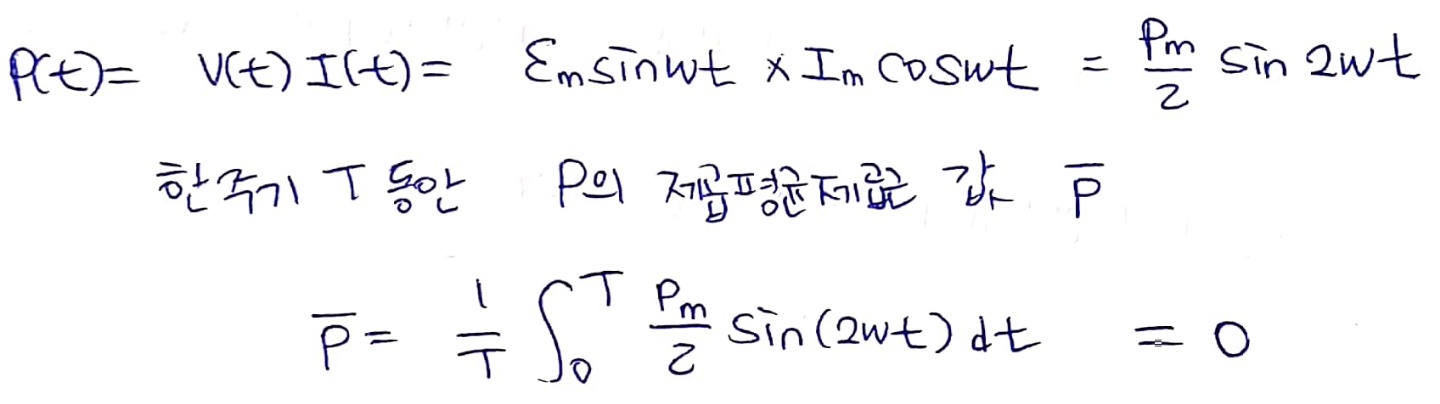 P(t)= V(t) I(t)= Ɛm sin wt × Im cos wt = Pm/2 sin 2wt
한 주기 T 동안 P의 제곱평균제곱근 값 P̅
P̅ = 1/T ∫₀ᵀ Pm/2 sin(2wt) dt = 0